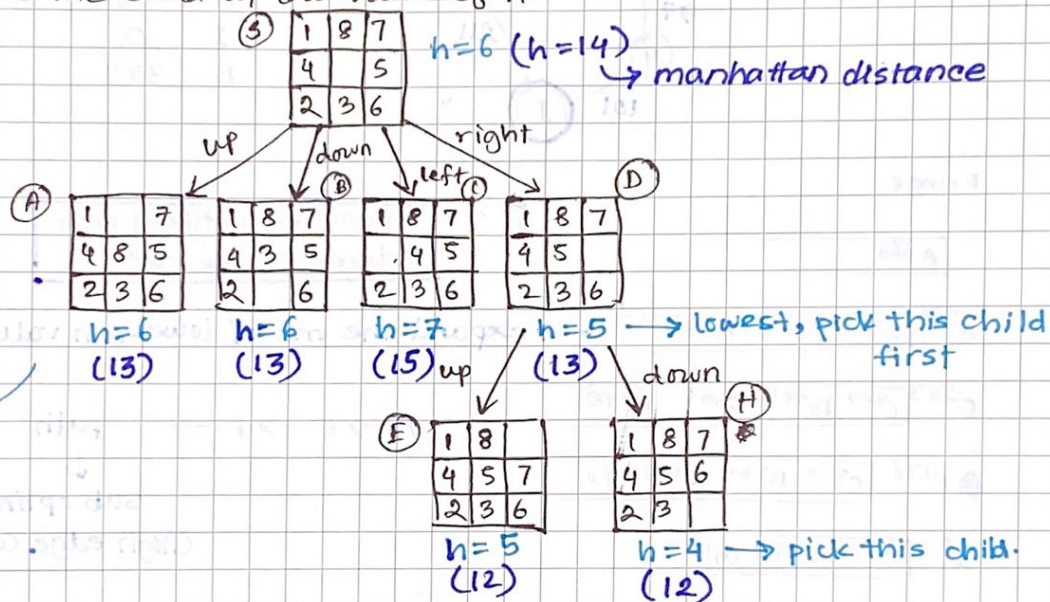 S
1 8 7
4 5
2 3 6
h=6 (h=14)
↳ manhattan distance
up
down
left
right
A
1 7
4 8 5
2 3 6
h=6
(13)
B
1 8 7
4 3 5
2 6
h=6
(13)
C
1 8 7
4 5
2 3 6
h=7
(15)
D
1 8 7
4 5
2 3 6
h=5 → lowest, pick this child
first
(13)
up
down
E
1 8
4 5 7
2 3 6
h=5
(12)
H
1 8 7
4 5 6
2 3
h=4 → pick this child.
(12)